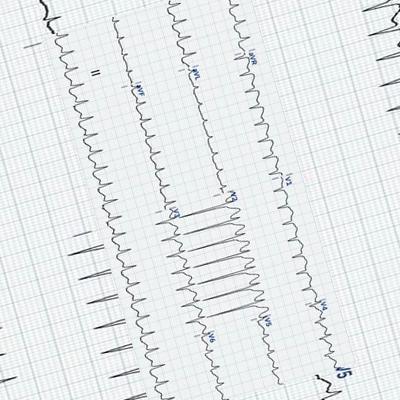 II
aVR
aVL
aVF
V1
V2
V3
V4
V5
V6
V5